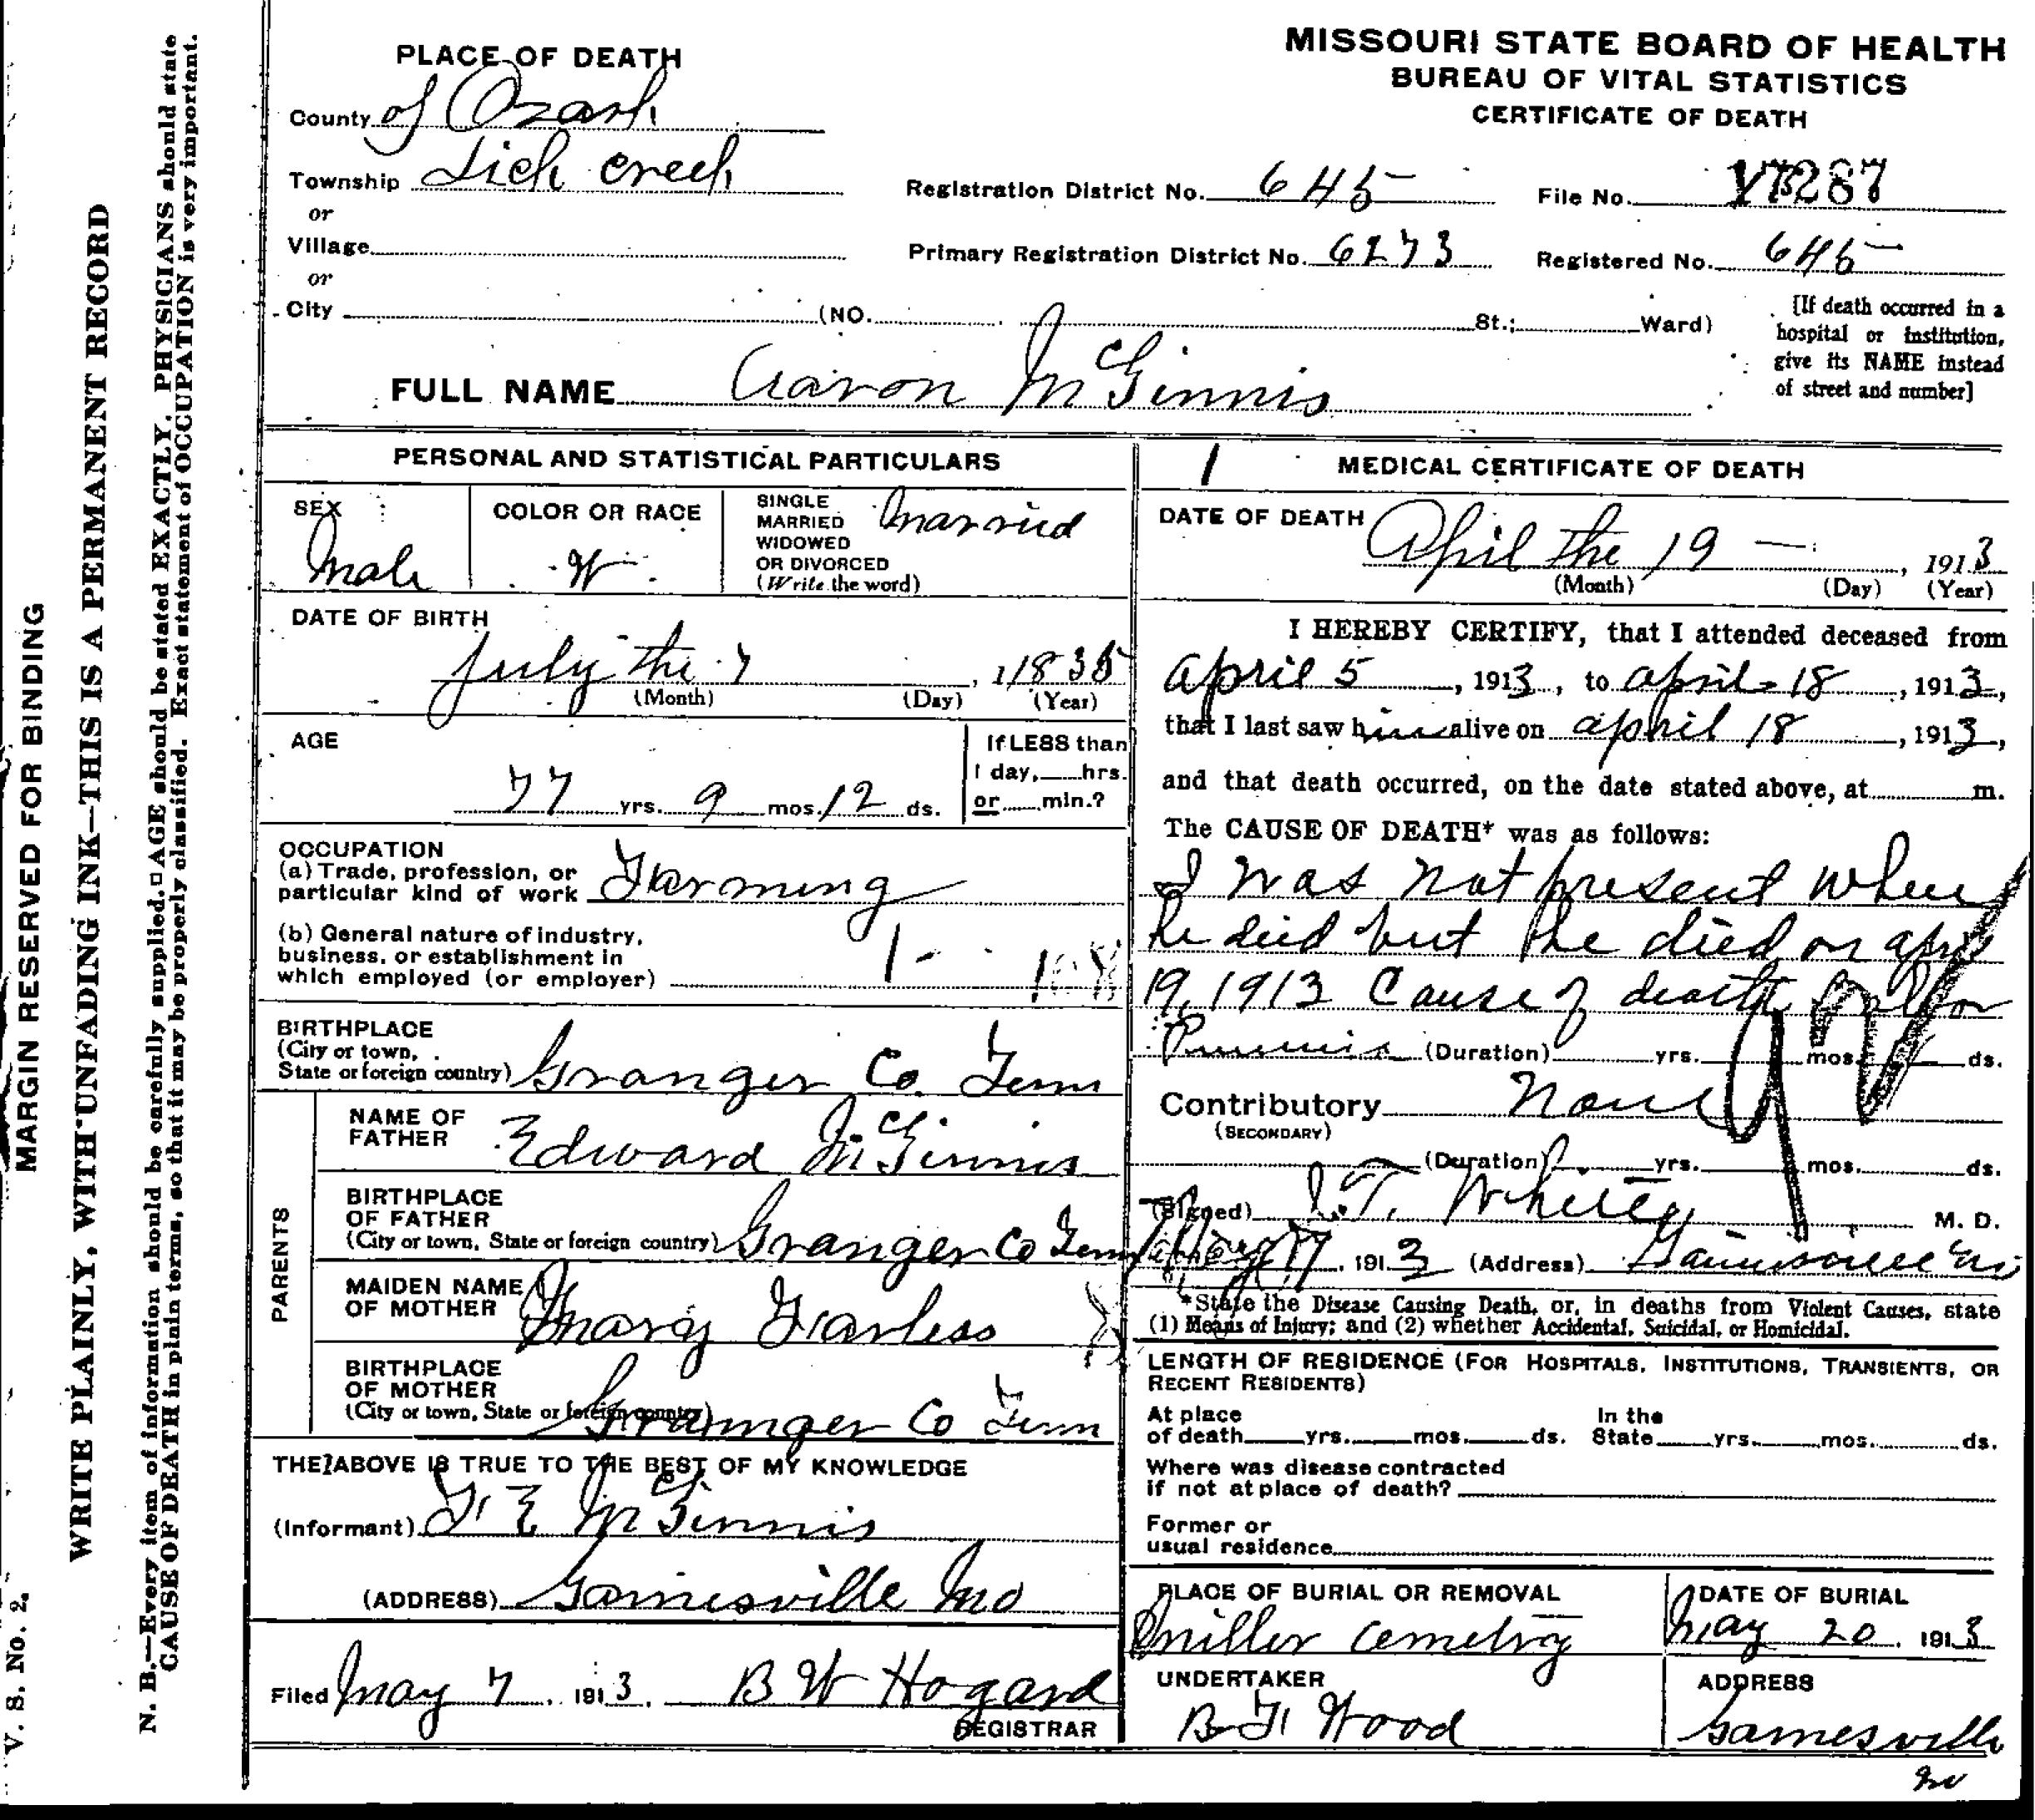 MARGIN RESERVED FOR BINDING
WRITE PLAINLY, WITH UNFADING INK—THIS IS A PERMANENT RECORD
N. B.—Every item of information should be carefully supplied. AGE should be stated EXACTLY. PHYSICIANS should state
CAUSE OF DEATH in plain terms, so that it may be properly classified. Exact statement of OCCUPATION is very important.
V. S. No. 2.
MISSOURI STATE BOARD OF HEALTH
BUREAU OF VITAL STATISTICS
CERTIFICATE OF DEATH
PLACE OF DEATH
County of Ozark
Township Lick Creek
or
Village
or
City (NO. St.; Ward)
Registration District No. 645 File No. 17287
Primary Registration District No. 6273 Registered No. 645
[If death occurred in a
hospital or institution,
give its NAME instead
of street and number]
FULL NAME Aaron McGinnis
PERSONAL AND STATISTICAL PARTICULARS
SEX
Male
COLOR OR RACE
W
SINGLE
MARRIED
WIDOWED
OR DIVORCED
(Write the word)
Married
DATE OF BIRTH
July the 7, 1835
(Month) (Day) (Year)
AGE
77 yrs. 9 mos. 12 ds.
If LESS than
1 day, hrs.
or min.?
OCCUPATION
(a) Trade, profession, or
particular kind of work Farming
(b) General nature of industry,
business, or establishment in
which employed (or employer)
BIRTHPLACE
(City or town,
State or foreign country) Granger Co. Tenn
PARENTS
NAME OF
FATHER Edward McGinnis
BIRTHPLACE
OF FATHER
(City or town, State or foreign country) Granger Co Tenn
MAIDEN NAME
OF MOTHER Mary Harless
BIRTHPLACE
OF MOTHER
(City or town, State or foreign country) Grainger Co Tenn
THE ABOVE IS TRUE TO THE BEST OF MY KNOWLEDGE
(Informant) F E McGinnis
(ADDRESS) Gainesville Mo
Filed May 7, 1913. B W Hogard
REGISTRAR
1 MEDICAL CERTIFICATE OF DEATH
DATE OF DEATH April the 19 —, 1913
(Month) (Day) (Year)
I HEREBY CERTIFY, that I attended deceased from
April 5, 1913, to april 18, 1913,
that I last saw him alive on april 18, 1913,
and that death occurred, on the date stated above, at m.
The CAUSE OF DEATH* was as follows:
I was not present when
he died but he died on apr
19, 1913 Cause of death
(Duration) yrs. mos. ds.
Contributory None
(SECONDARY)
(Duration) yrs. mos. ds.
(Signed) M. D.
1913 (Address) Gainesville Mo
*State the Disease Causing Death, or, in deaths from Violent Causes, state
(1) Means of Injury; and (2) whether Accidental, Suicidal, or Homicidal.
LENGTH OF RESIDENCE (FOR HOSPITALS, INSTITUTIONS, TRANSIENTS, OR
RECENT RESIDENTS)
At place
of death yrs. mos. ds.
In the
State yrs. mos. ds.
Where was disease contracted
if not at place of death?
Former or
usual residence
PLACE OF BURIAL OR REMOVAL
Miller Cemetry
DATE OF BURIAL
May 20, 1913
UNDERTAKER
B F Wood
ADDRESS
Gainesville
Mo